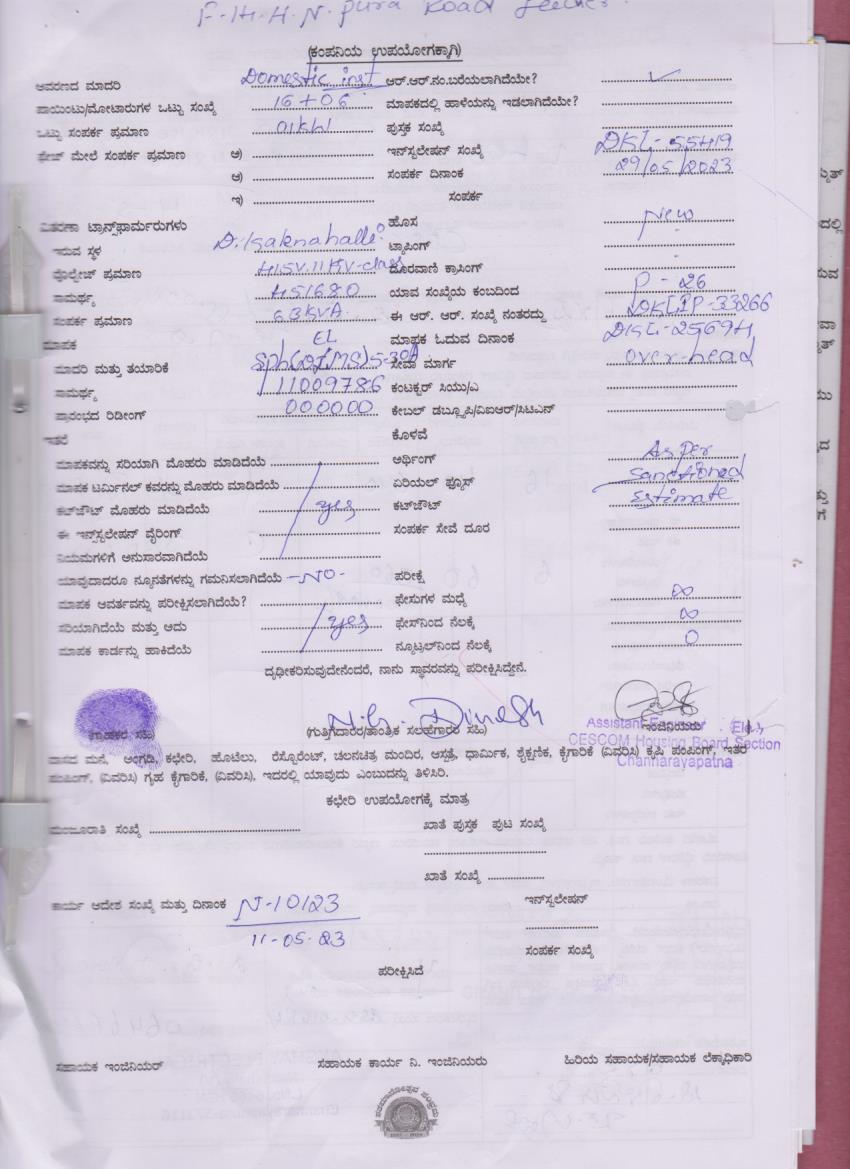 F-14-H.N.pura Road feeder.
(ಕಂಪನಿಯ ಉಪಯೋಗಕ್ಕಾಗಿ)
ಆವರಣದ ಮಾದರಿ Domestic inst ಆರ್.ಆರ್.ನಂ.ಬರೆಯಲಾಗಿದೆಯೇ? ✓
ಪಾಯಿಂಟು/ಮೋಟಾರುಗಳ ಒಟ್ಟು ಸಂಖ್ಯೆ 16+06 ಮಾಪಕದಲ್ಲಿ ಹಾಳೆಯನ್ನು ಇಡಲಾಗಿದೆಯೇ?
ಒಟ್ಟು ಸಂಪರ್ಕ ಪ್ರಮಾಣ 01KW ಪುಸ್ತಕ ಸಂಖ್ಯೆ
ಫೇಜ್ ಮೇಲೆ ಸಂಪರ್ಕ ಪ್ರಮಾಣ ಅ) ಇನ್‌ಸ್ಟಲೇಷನ್ ಸಂಖ್ಯೆ DKL-55419
ಆ) ಸಂಪರ್ಕ ದಿನಾಂಕ 29/05/2023
ಇ) ಸಂಪರ್ಕ
ವಿತರಣಾ ಟ್ರಾನ್ಸ್‌ಫಾರ್ಮರುಗಳು ಹೊಸ New
ಇರುವ ಸ್ಥಳ D.Kaknahalli ಟ್ಯಾಪಿಂಗ್ -
ವೋಲ್ಟೇಜ್ ಪ್ರಮಾಣ 415V.11KV-class ದೂರವಾಣಿ ಕ್ರಾಸಿಂಗ್ -
ಸಾಮರ್ಥ್ಯ 451680 ಯಾವ ಸಂಖ್ಯೆಯ ಕಂಬದಿಂದ P-26
ಸಂಪರ್ಕ ಪ್ರಮಾಣ 63KVA ಈ ಆರ್. ಆರ್. ಸಂಖ್ಯೆ ನಂತರದ್ದು DKLIP-33266
ಮಾಪಕ EL ಮಾಪಕ ಓದುವ ದಿನಾಂಕ DKL-25694
ಮಾದರಿ ಮತ್ತು ತಯಾರಿಕೆ 5-30A ಸೇವಾ ಮಾರ್ಗ over-head
ಸಾಮರ್ಥ್ಯ 11009786 ಕಂಟಕ್ಟರ್ ಸಿಯು/ಎ
ಪ್ರಾರಂಭದ ರಿಡೀಂಗ್ 000000 ಕೇಬಲ್ ಡಬ್ಲ್ಯೂಪಿ/ವಿಐಆರ್/ಸಿಟಿಎಸ್
ಇತರೆ ಕೊಳವೆ
ಮಾಪಕವನ್ನು ಸರಿಯಾಗಿ ಮೊಹರು ಮಾಡಿದೆಯೆ ಅರ್ಥಿಂಗ್ As per
ಮಾಪಕ ಟರ್ಮಿನಲ್ ಕವರನ್ನು ಮೊಹರು ಮಾಡಿದೆಯೆ ಏರಿಯಲ್ ಫ್ಯೂಸ್ sanctioned
ಕಟ್‌ಔಟ್ ಮೊಹರು ಮಾಡಿದೆಯೆ yes ಕಟ್‌ಔಟ್ Estimate
ಈ ಇನ್‌ಸ್ಟಲೇಷನ್ ವೈರಿಂಗ್ ಸಂಪರ್ಕ ಸೇವೆ ದೂರ
ನಿಯಮಗಳಿಗೆ ಅನುಸಾರವಾಗಿದೆಯೆ
ಯಾವುದಾದರೂ ನ್ಯೂನತೆಗಳನ್ನು ಗಮನಿಸಲಾಗಿದೆಯೆ -NO- ಪರೀಕ್ಷೆ
ಮಾಪಕ ಆವರ್ತವನ್ನು ಪರೀಕ್ಷಿಸಲಾಗಿದೆಯೆ? ಫೇಸುಗಳ ಮಧ್ಯೆ ∞
ಸರಿಯಾಗಿದೆಯೆ ಮತ್ತು ಅದು yes ಫೇಸ್‌ನಿಂದ ನೆಲಕ್ಕೆ ∞
ಮಾಪಕ ಕಾರ್ಡನ್ನು ಹಾಕಿದೆಯೆ ನ್ಯೂಟ್ರಲ್‌ನಿಂದ ನೆಲಕ್ಕೆ 0
ದೃಢೀಕರಿಸುವುದೇನೆಂದರೆ, ನಾನು ಸ್ಥಾವರವನ್ನು ಪರೀಕ್ಷಿಸಿದ್ದೇನೆ.
Dinesh
ಗ್ರಾಹಕರ ಸಹಿ) (ಗುತ್ತಿಗೆದಾರರ/ತಾಂತ್ರಿಕ ಸಲಹೆಗಾರರ ಸಹಿ) ಇಂಜಿನಿಯರು
Assistant Engineer (Ele.)
CESCOM Housing Board Section
Channarayapatna
ವಾಸದ ಮನೆ, ಅಂಗಡಿ, ಕಛೇರಿ, ಹೋಟೆಲು, ರೆಸ್ಟೋರೆಂಟ್, ಚಲನಚಿತ್ರ ಮಂದಿರ, ಆಸ್ಪತ್ರೆ, ಧಾರ್ಮಿಕ, ಶೈಕ್ಷಣಿಕ, ಕೈಗಾರಿಕೆ (ವಿವರಿಸಿ) ಕೃಷಿ ಪಂಪಿಂಗ್, ಇತರೆ
ಪಂಪಿಂಗ್, (ವಿವರಿಸಿ) ಗೃಹ ಕೈಗಾರಿಕೆ, (ವಿವರಿಸಿ), ಇದರಲ್ಲಿ ಯಾವುದು ಎಂಬುದನ್ನು ತಿಳಿಸಿರಿ.
ಕಛೇರಿ ಉಪಯೋಗಕ್ಕೆ ಮಾತ್ರ
ಮಂಜೂರಾತಿ ಸಂಖ್ಯೆ ಖಾತೆ ಪುಸ್ತಕ ಪುಟ ಸಂಖ್ಯೆ
ಖಾತೆ ಸಂಖ್ಯೆ
ಕಾರ್ಯ ಆದೇಶ ಸಂಖ್ಯೆ ಮತ್ತು ದಿನಾಂಕ N-10123 ಇನ್‌ಸ್ಟಲೇಷನ್
11-05-23
ಸಂಪರ್ಕ ಸಂಖ್ಯೆ
ಪರೀಕ್ಷಿಸಿದೆ
ಸಹಾಯಕ ಇಂಜಿನಿಯರ್ ಸಹಾಯಕ ಕಾರ್ಯ ನಿ. ಇಂಜಿನಿಯರು ಹಿರಿಯ ಸಹಾಯಕ/ಸಹಾಯಕ ಲೆಕ್ಕಾಧಿಕಾರಿ